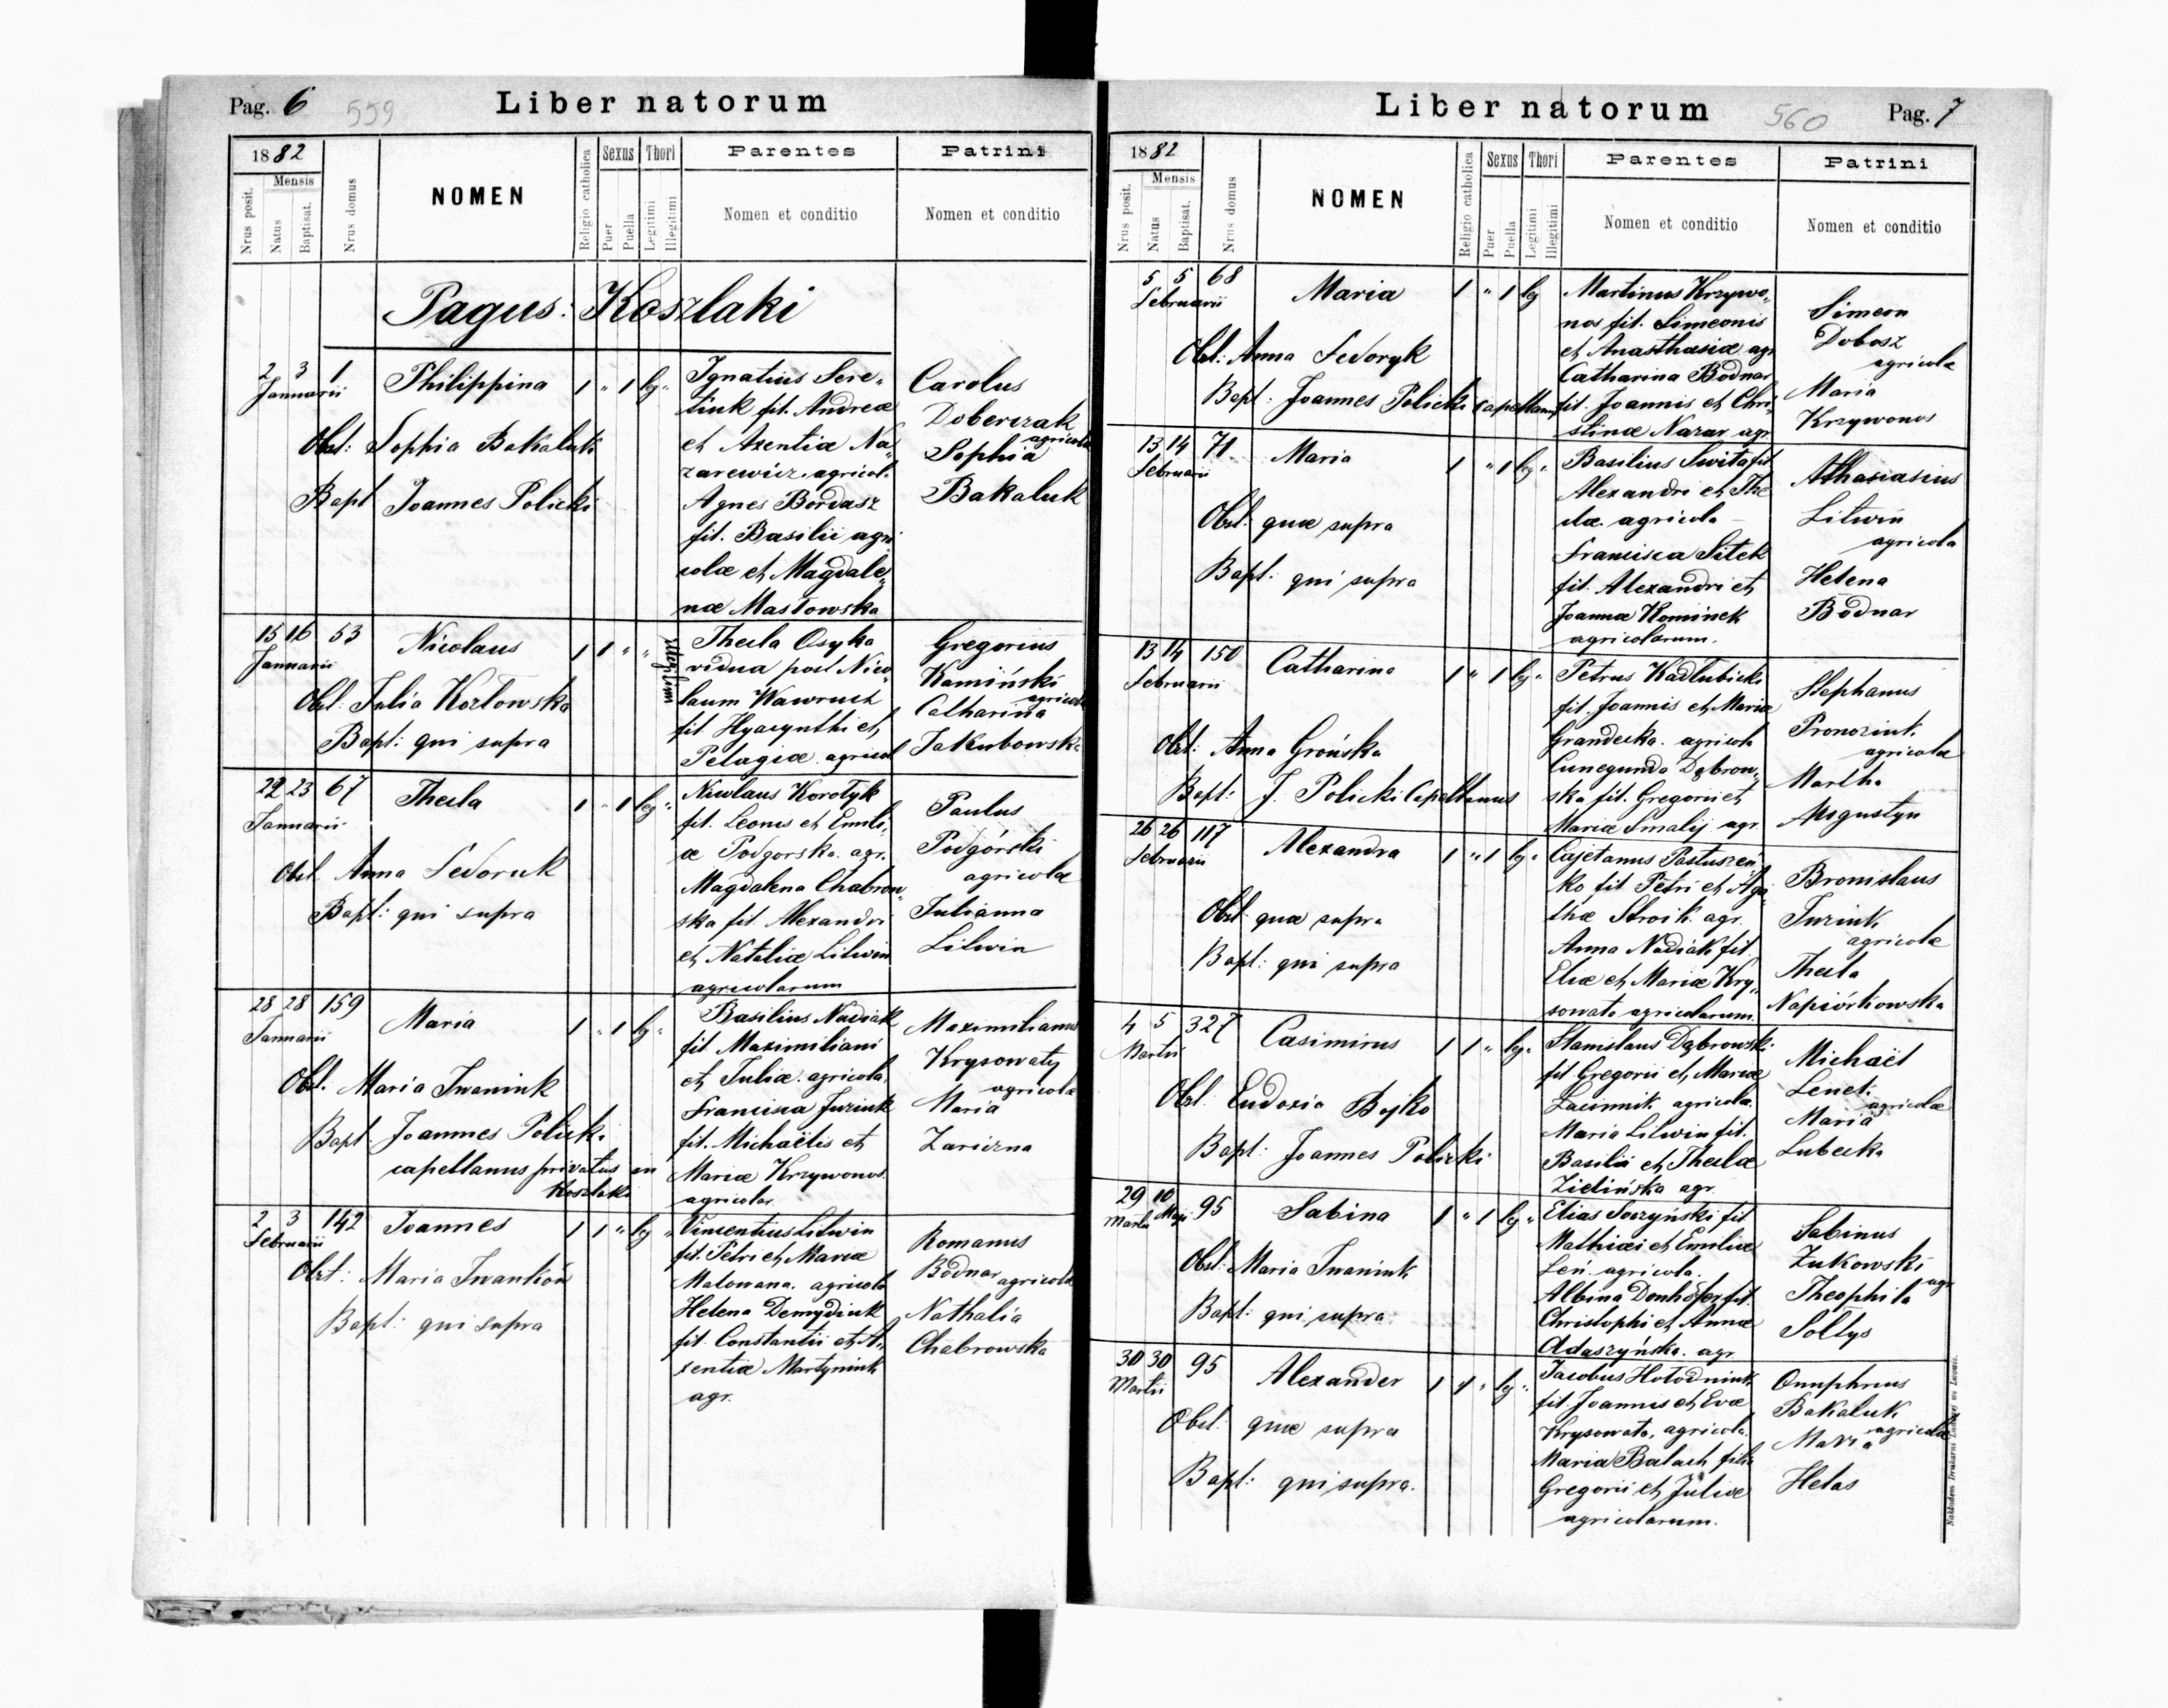 Pag. 6 559 Liber natorum
1882
Nrus posit.
Mensis
Natus
Baptisat.
Nrus domus
NOMEN
Religio catholica
Sexus
Puer
Puella
Thori
Legitimi
Illegitimi
Parentes
Nomen et conditio
Patrini
Nomen et conditio
Pagus: Koszlaki
2 3 1
Januarii
Philippina 1 " 1 leg "
Obst: Sophia Bakaluk
Bapt Joannes Policki
Ignatius Sere„
tiuk fil. Andreæ
et Axentiæ Na„
zarewicz, agricol.
Agnes Bordasz
fil. Basilii agri
colæ et Magdale„
næ Masłowska
Carolus
Doberczak
agricola
Sophia
Bakaluk
15 16 53
Januarii
Nicolaus 1 1 " "
Obst. Julia Kozłowska
Bapt: qui supra
Thecla Osyka
vidua post Nico„
laum Wawruch
fil. Hyacynthi et
Pelagiæ agricol
Gregorius
Kamiński
agricola
Catharina
Jakubowska
22 23 67
Januarii
Thecla 1 " 1 leg "
Obst Anna Fedoruk
Bapt: qui supra
Nicolaus Korotyk
fil. Leonis et Emili„
æ Podgorska. agr.
Magdalena Chabrow„
ska fil. Alexandri
et Nataliæ Litwin
agricolarum
Paulus
Podgórski
agricolæ
Julianna
Litwin
28 28 159
Januarii
Maria 1 " 1 leg "
Obst. Maria Iwaniuk
Bapt. Joannes Policki
capellanus privatus in
Koszlaki
Basilius Nadiak
fil. Maximiliani
et Juliæ. agricola.
Francisca Juziuk
fil. Michaëlis et
Mariæ Krzywonos.
agricolar.
Maximilianus
Krysowaty
agricolæ
Maria
Zariczna
2 3 142
Februarii
Joannes 1 1 " leg "
Obst: Maria Iwankón
Bapt: qui supra
Vincentius Litwin
fil. Petri et Mariæ
Malowana. agricola
Helena Demydiuk
fil. Constantii et A„
xentiæ Martyniuk
agr.
Romanus
Bodnar
agricola
Nathalia
Chabrowska
Liber natorum 560 Pag. 7
1882
Nrus posit.
Mensis
Natus
Baptisat.
Nrus domus
NOMEN
Religio catholica
Sexus
Puer
Puella
Thori
Legitimi
Illegitimi
Parentes
Nomen et conditio
Patrini
Nomen et conditio
5 5 68
Februarii
Maria 1 " 1 leg
Obst: Anna Fedoryk
Bapt: Joannes Policki capellanus
Martinus Krzywo„
nos fil. Simeonis
et Anasthasiæ agr
Catharina Bodnar
fil. Joannis et Chri„
stinæ Nazar agr.
Simeon
Dobosz
agricola
Maria
Krzywonos
13 14 71
Februarii
Maria 1 " 1 leg "
Obst. quæ supra
Bapt: qui supra
Basilius Swita fil
Alexandri et The
clæ. agricola
Francisca Sitek
fil. Alexandri et
Joannæ Kominek
agricolarum.
Athanasius
Litwin
agricola
Helena
Bodnar
13 14 150
Februarii
Catharina 1 " 1 leg "
Obst: Anna Grońska
Bapt: J. Policki Capellanus
Petrus Kadlubicki
fil. Joannis et Mariæ
Grandecka. agricola
Cunegunda Dąbrow„
ska fil. Gregorii et
Mariæ Smalij agr.
Stephanus
Pronoziuk
agricolæ
Martha
Augustyn
26 26 117
Februarii
Alexandra 1 " 1 leg "
Obst quæ supra
Bapt: qui supra
Cajetanus Pastuszeń„
ko fil Petri et Aga
thæ Stroik. agr.
Anna Nadiak fil.
Eliæ et Mariæ Kry„
sowata agricolarum.
Bronislaus
Juziuk
agricolæ
Thecla
Napiórkowska
4 5 327
Martii
Casimirus 1 1 " leg "
Obst. Eudoxia Bojko
Bapt: Joannes Policki
Stanislaus Dąbrowski
fil Gregorii et Mariæ
agricola.
Maria Litwin fil.
Basilii et Theclæ
Zielińska agr.
Michaël
agricolæ
Maria
Lubecka
29 10 95
Martii Maji
Sabina 1 " 1 leg "
Obst: Maria Iwaniuk
Bapt: qui supra
Elias Soczyński fil
Mathiæi et Emiliæ
Leń. agricola.
Albina Donhöfer fil.
Christophi et Annæ
Adaszyńska. agr.
Sabinus
Żukowski
agr
Theophila
Sołtys
30 30 95
Martii
Alexander 1 1 " leg "
Obst: quæ supra
Bapt: qui supra.
Jacobus Hołodniuk
fil. Joannis et Evæ
Krysowata, agricola.
Maria Balach filia
Gregorii et Juliæ
agricolarum.
Onuphrius
Bakaluk
agricolæ
Maria
Helas